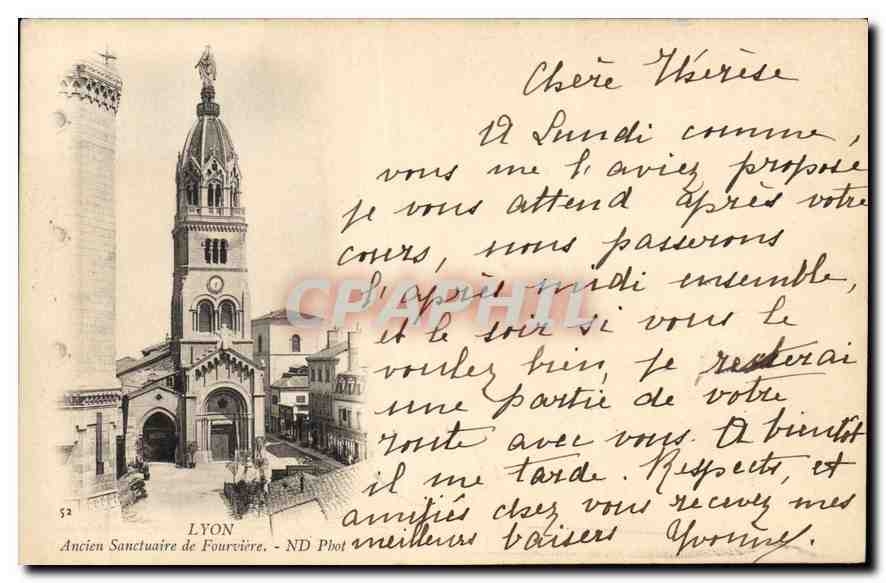 Chère Thérèse
A Lundi comme,
vous me l'aviez propose
je vous attend après votre
cours, nous passerons
l'après midi ensemble,
et le soir si vous le
voulez bien, je resterai
une partie de votre
route avec vous. A bientôt
il me tarde. Respects, et
amitiés chez vous recevez mes
meilleurs baisers Yvonne.
CPAPHIL
52
LYON
Ancien Sanctuaire de Fourvière. - ND Phot